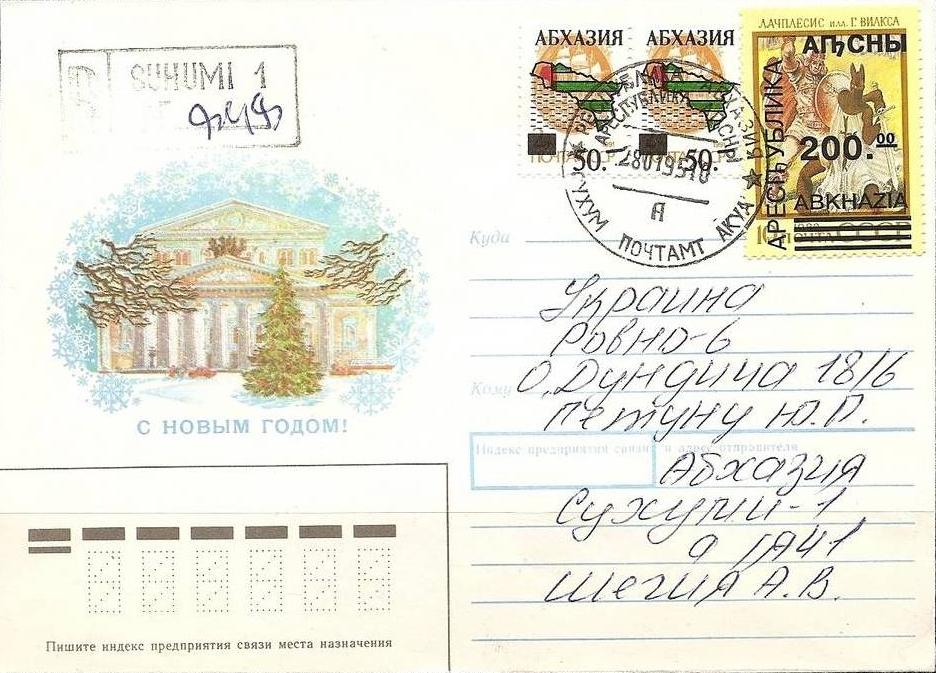 R
SUHUMI 1
АБХАЗИЯ
50.
АБХАЗИЯ
50.
ЛАЧПЛЕСИС ИЛЛ. Г. ВИЛКСА
АԤСНЫ
АРЕСПУБЛИКА
200.00
ABKHAZIA
ПОЧТА СССР
РЕСПУБЛИКА АБХАЗИЯ
АРЕСПУБЛИКА АПСНЫ
28019518
Я
СУХУМ ПОЧТАМТ АКУА
С НОВЫМ ГОДОМ!
Куда
Украина
Ровно-6
О. Дундича 18/6
Кому
Петуну Ю.П.
Индекс предприятия связи и адрес отправителя
Абхазия
Сухуми-1
а/я 41
Шегия А.В.
Пишите индекс предприятия связи места назначения